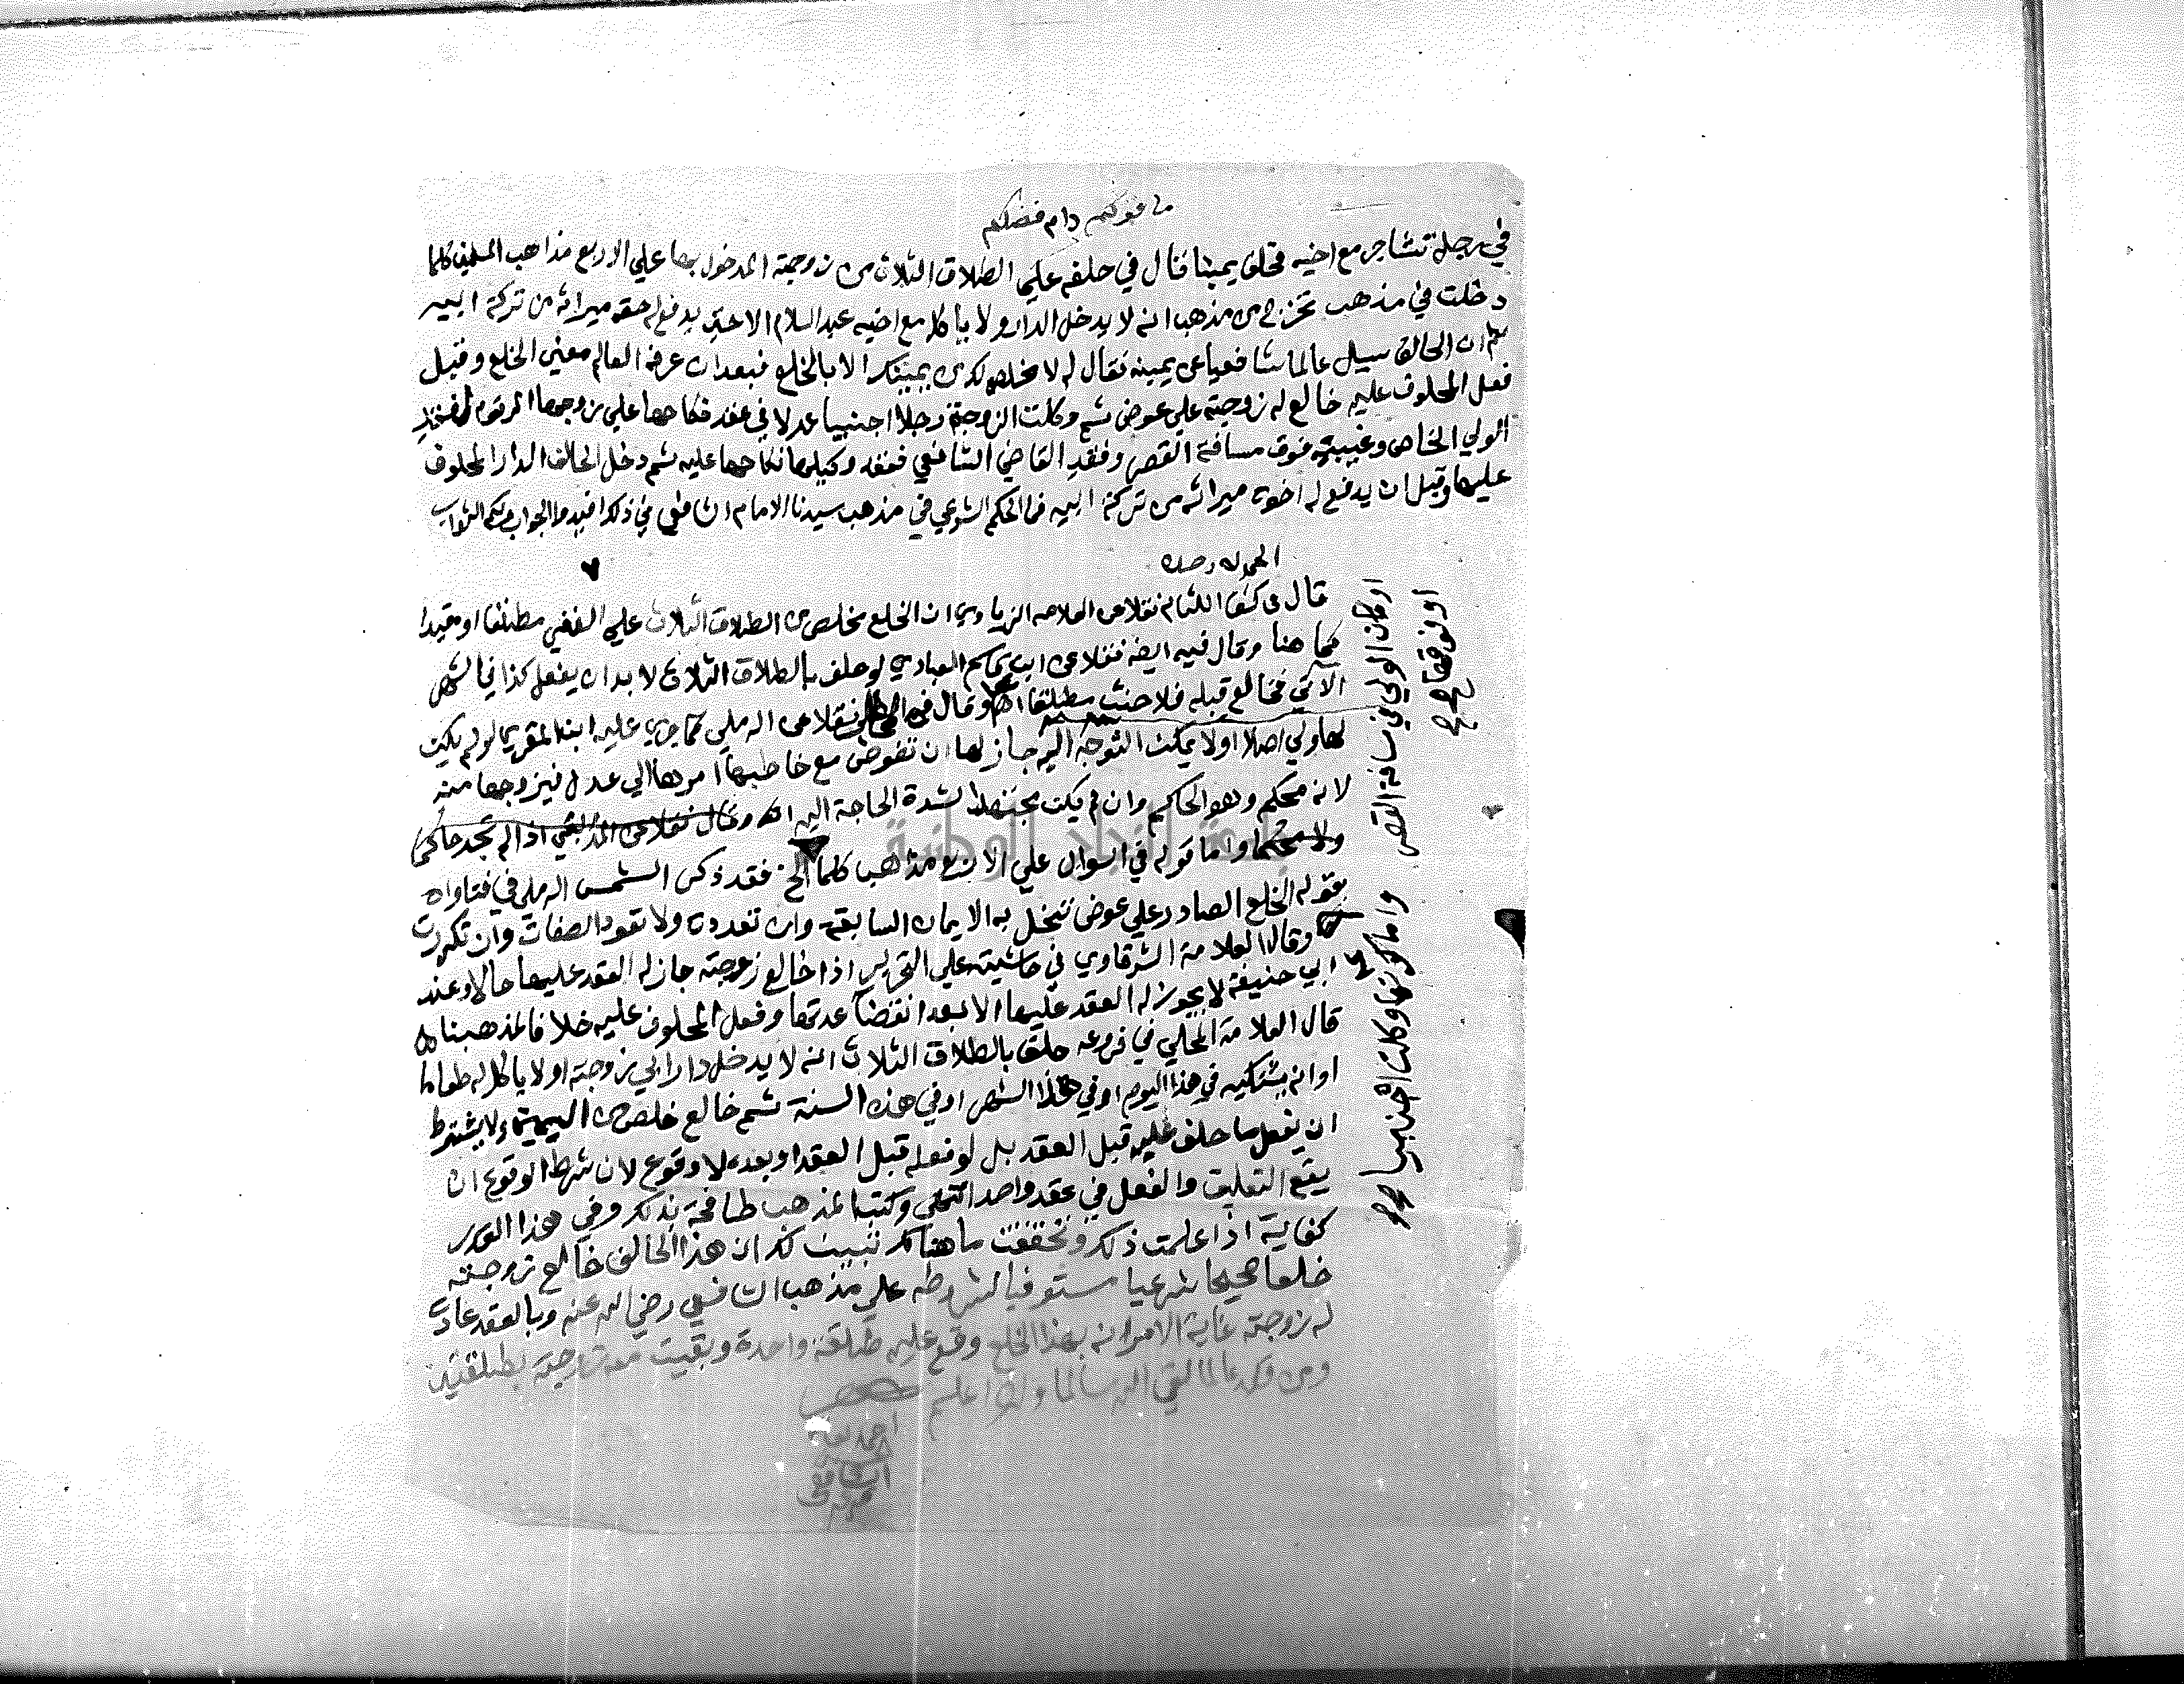 ما قولكم دام فضلكم
في رجل تشاجر مع اخيه فحلف يمينا فقال في حلفه عليه الطلاق الثلاث من زوجته المدخول بها علي الاربع مذاهب المسلمين كلما
دخلت في مذهب تخرجي من مذهب انه لا يدخل الدار ولا ياكل مع اخيه عبد السلام الا حتي يدفع له حقه ميراثه من تركة ابيه
ثم ان الحالف سيل عالما شافعيا عن يمينه فقال له لا مخلص لك من يمينك الا بالخلع فبعد ان عرفه العالم معني الخلع وقبل
فعل المحلوف عليه خالع له زوجته علي عوض ثم وكلت الزوجة رجلا اجنبيا عدلا في عقد نكاحها علي زوجها المرقوم لفقد
الولي الخاص وغيبته فوق مسافة القصر وفقد القاضي الشافعي فعقد وكيلها نكاحها عليه ثم دخل الحالف الدار المحلوف
عليها وقبل ان يدفع له اخوه ميراثه من تركة ابيه فما الحكم الشرعي في مذهب سيدنا الامام الشافعي في ذلك افيدوا الجواب ولكم الثواب
الحمد لله وحده
قال في كشف اللثام نقلا عن العلامه الزيادي ان الخلع مخلص من الطلاق الثلاث علي النفي مطلقا او مقيدا
كما هنا وقال فيه ايضه نقلا عن ابن قاسم العبادي لو حلف بالطلاق الثلاث لا بد ان يفعل كذا في الشهر
الآتي فخالع قبله فلا حنث مطلقا اه وقال في نقلا عن الرملي كما جري عليه ابن المقري لو لم يكن
لها ولي اصلا او لا يمكن التوجه اليه جاز لها ان تفوض مع خاطبها امرها الي عدل فيزوجها منه
لانه محكم وهو الحاكم وان لم يكن مجتهدا لشدة الحاجة اليه اه وقال نقلا عن اذا لم تجد حاكما
ولا محكما واما قوله في السوال علي الاربع مذاهب كلما الخ فقد ذكر الشمس الرملي في فتاواه
بقوله الخلع الصادر علي عوض تنحل به الايمان السابقة وان تعددت ولا تعود الصفات وان تكررت
وقال العلامة الشرقاوي في حاشيته علي التحرير اذا خالع زوجته جاز له العقد عليها حالا وعند
ابي حنيفة لا يجوز له العقد عليها الا بعد انقضآ عدتها وفعل المحلوف عليه خلافا لمذهبنا اه
قال العلامة المحلي في فروعه حلف بالطلاق الثلاث انه لا يدخل دار ابي زوجته او لا ياكل له طعاما
او انه يشتكيه في هذا اليوم او في هذا الشهر او في هذه السنة ثم خالع خلص من اليمين ولا يشترط
ان يفعل ما حلف عليه قبل العقد بل لو فعله قبل العقد او بعده لا وقوع لان شرط الوقوع ان
يقع التعليق والفعل في عقد واحد انتهي وكتب المذهب طافحة بذلك وفي هذا القدر
كفاية اذا علمت ذلك وتحققت ما هنالك تبين لك ان هذا الحالف خالع زوجته
خلعا صحيحا شرعيا مستوفيا لشروطه علي مذهب الشافعي رضي الله عنه وبالعقد عادت
له زوجته غاية الامر انه بهذا الخلع وقع عليه طلقة واحدة وبقيت معه زوجته بطلقتين
ومن قلد عالما لقي الله سالما والله اعلم
احمد
او كان الولي في مسافة القصر
او فوقها
واما كونها وكلت اجنبيا